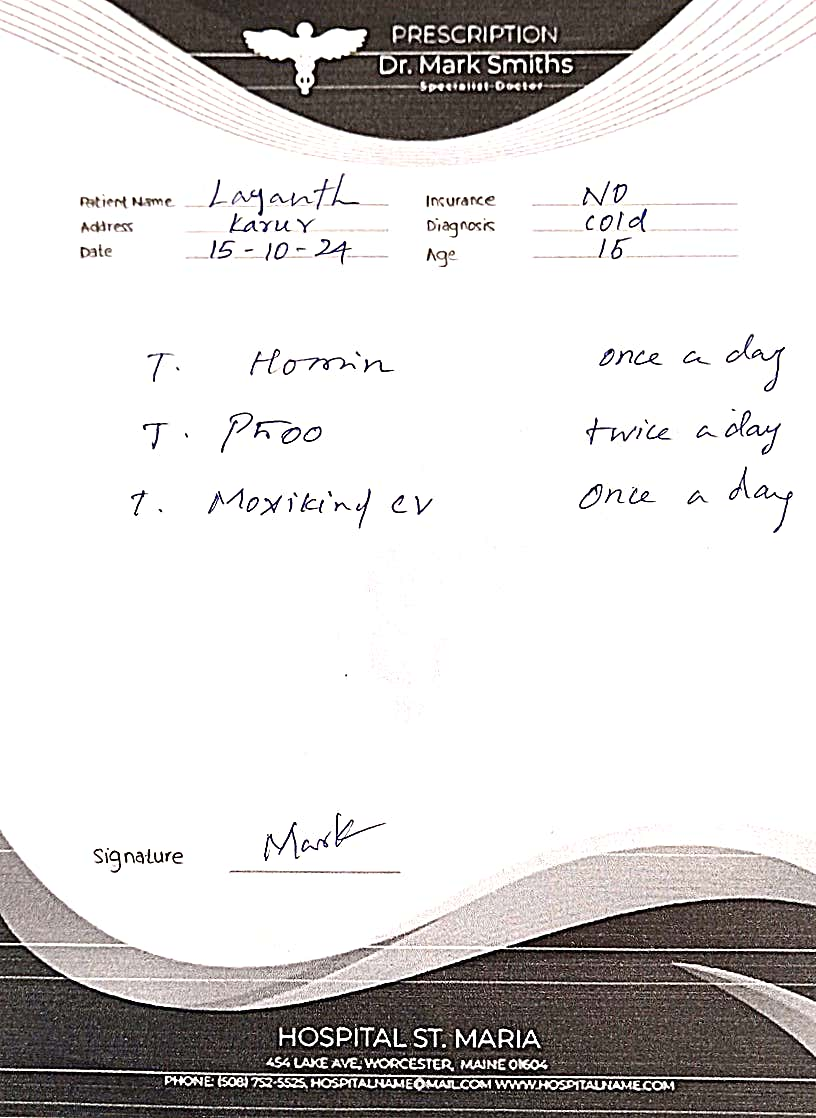 PRESCRIPTION
Dr. Mark Smiths
Specialist Doctor
Patient Name Layanth Insurance NO
Address Karur Diagnosis cold
Date 15-10-24 Age 15
T. once a day
T. P500 twice a day
T. Moxikind CV Once a day
Signature Mark
HOSPITAL ST. MARIA
454 LAKE AVE, WORCESTER, MAINE 01604
PHONE: (508) 752-5525, HOSPITALNAME@MAIL.COM WWW.HOSPITALNAME.COM